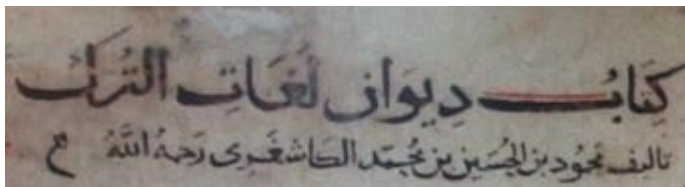 كِتَابُ دِيوَانِ لُغَاتِ التُّركْ
تاليف محمُود بن الحُسَين بن محمّد الكاشغَرى رَحمهُ اللَّهُ